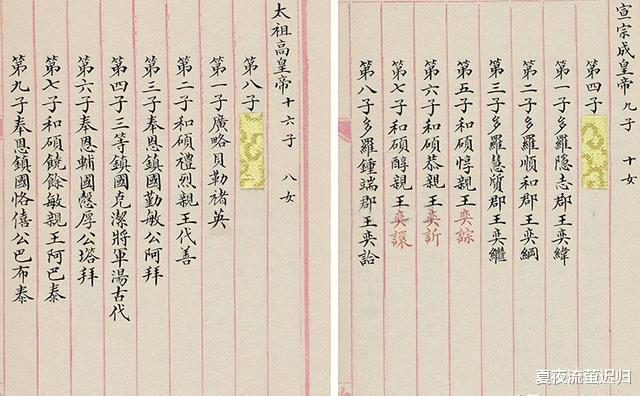 太祖高皇帝 十六子 八女
第八子
第一子廣略貝勒褚英
第二子和碩禮烈親王代善
第三子奉恩鎮國勤敏公阿拜
第四子三等鎮國克潔將軍湯古代
第六子奉恩輔國慤厚公塔拜
第七子和碩饒餘敏親王阿巴泰
第九子奉恩鎮國恪僖公巴布泰
宣宗成皇帝 九子 十女
第四子
第一子多羅隱志郡王奕緯
第二子多羅順和郡王奕綱
第三子多羅慧質郡王奕繼
第五子和碩惇親王奕誴
第六子和碩恭親王奕訢
第七子和碩醇親王奕譞
第八子多羅鍾端郡王奕詥
夏夜流萤迟归